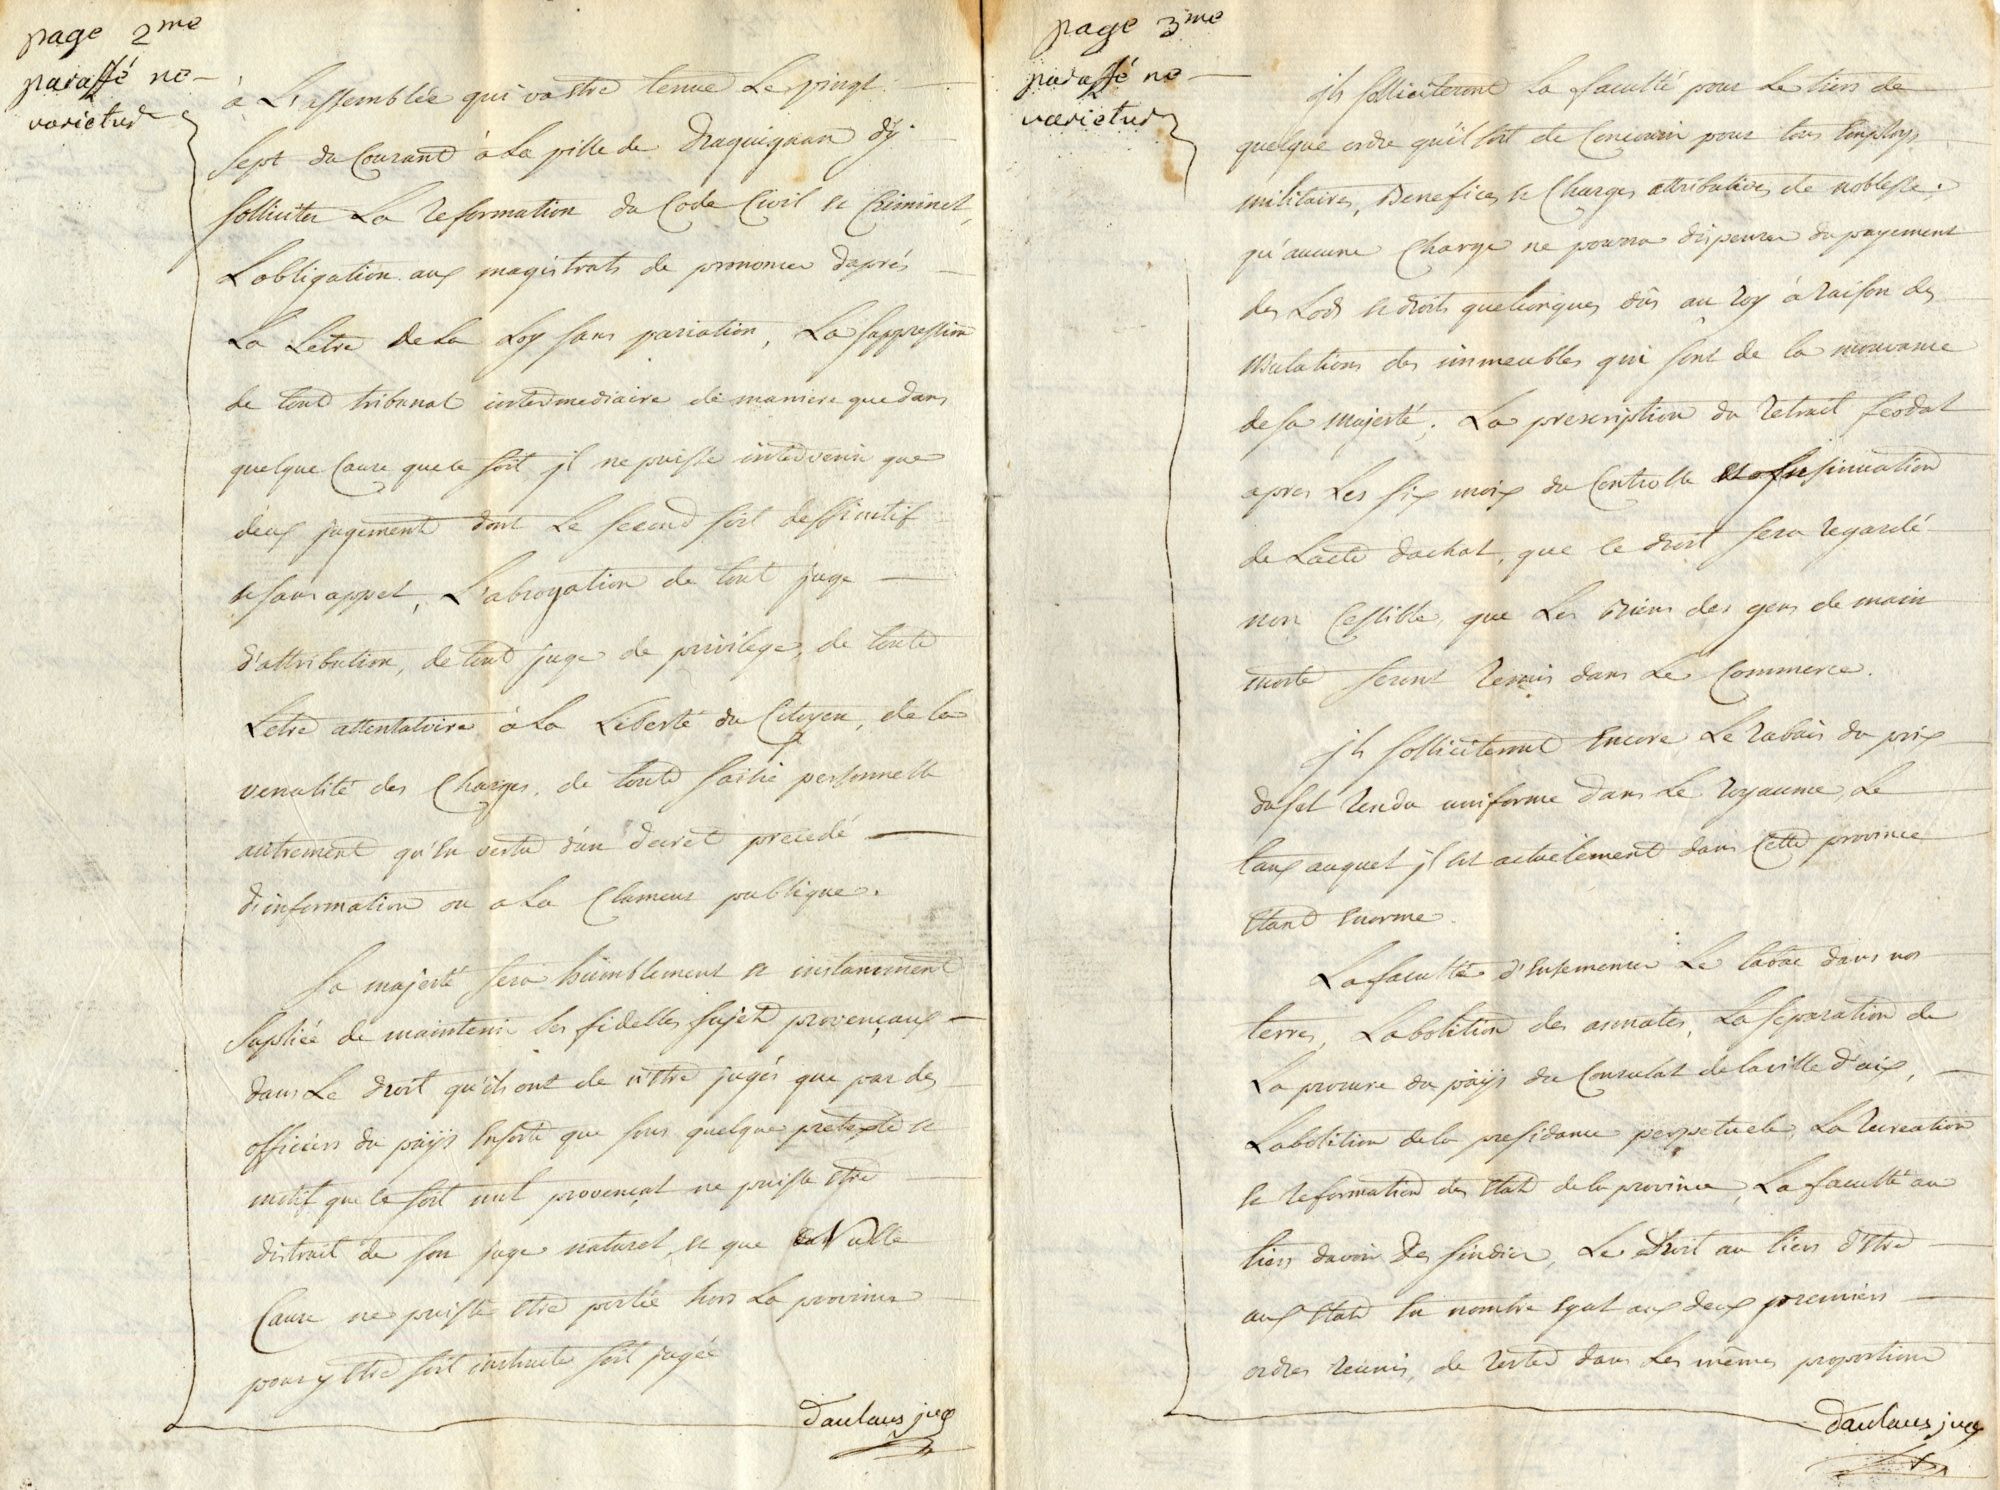 page 2me
paraffé ne
varietur
à L'assemblée qui va être tenue Le vingt
sept du Courant à La ville de Draguignan d'y
solliciter La reformation du Code Civil et Criminel,
L'obligation aux magistrats de prononcer daprés
La Letre de La Loy sans variation, La suppression
de tout tribunal intermediaire de maniere que dans
quelque Cause que ce soit jl ne puisse intervenir que
deux jugement dont Le second soit deffinitif
et sans appel, L'abrogation de tout juge
d'attribution, de tout juge de privilege, de toute
Letre attentatoire à La Liberté du Citoyen, de la
venalité des Charges, de toute saisie personnelle
autrement qu'en vertu d'un decret precedé
d'information ou a La Clameur publique.
Sa majesté sera humblement et instamment
supliée de maintenir ses fidelles sujets provençaux
dans Le droit qu'ils ont de n'être jugés que par des
officiers du païs ensorte que sous quelque pretexte et
motif que ce soit nul provençal ne puisse être
distrait de son juge naturel, et que nulle
Cause ne puisse être portée hors La province
pour y être soit instruite soit jugée
Daulans juge
page 3me
paraffé ne
varietur
jls solliciteront La faculté pour Le tiers de
quelque ordre qu'il soit de Concourir pour tous Employs
militaires, Benefices et Charges attributives de noblesse;
qu'aucune Charge ne pourra dispenser du payement
des Lods et droits quelconques dûs au roy à raison des
mutations des immeubles qui sont de la mouvance
de sa majesté; La prescription du retrait feodal
apres Les six mois du Controlle insinuation
de L'acte d'achat, que ce droit sera regardé
non Cessible, que Les Biens des gens de main
morte seront remis dans Le Commerce.
jls solliciteront Encore Le rabais du prix
du sel rendu uniforme dans Le royaume, Le
taux auquel jl est actuelement dans Cette province
étant Enorme.
La faculté d'Ensemencer Le tabac dans nos
terres, L'abolition des annates, La separation de
La procure du païs du Consulat de la ville d'aix,
L'abolition de la presidance perpetuele, La recreation
et reformation des Etats de la province, La faculté au
tiers d'avoir Des sindics, Le Droit au tiers d'être
aux Etats En nombre Egal aux deux premiers
ordres reunis, de rester dans Les mêmes proportions
Daulans juge